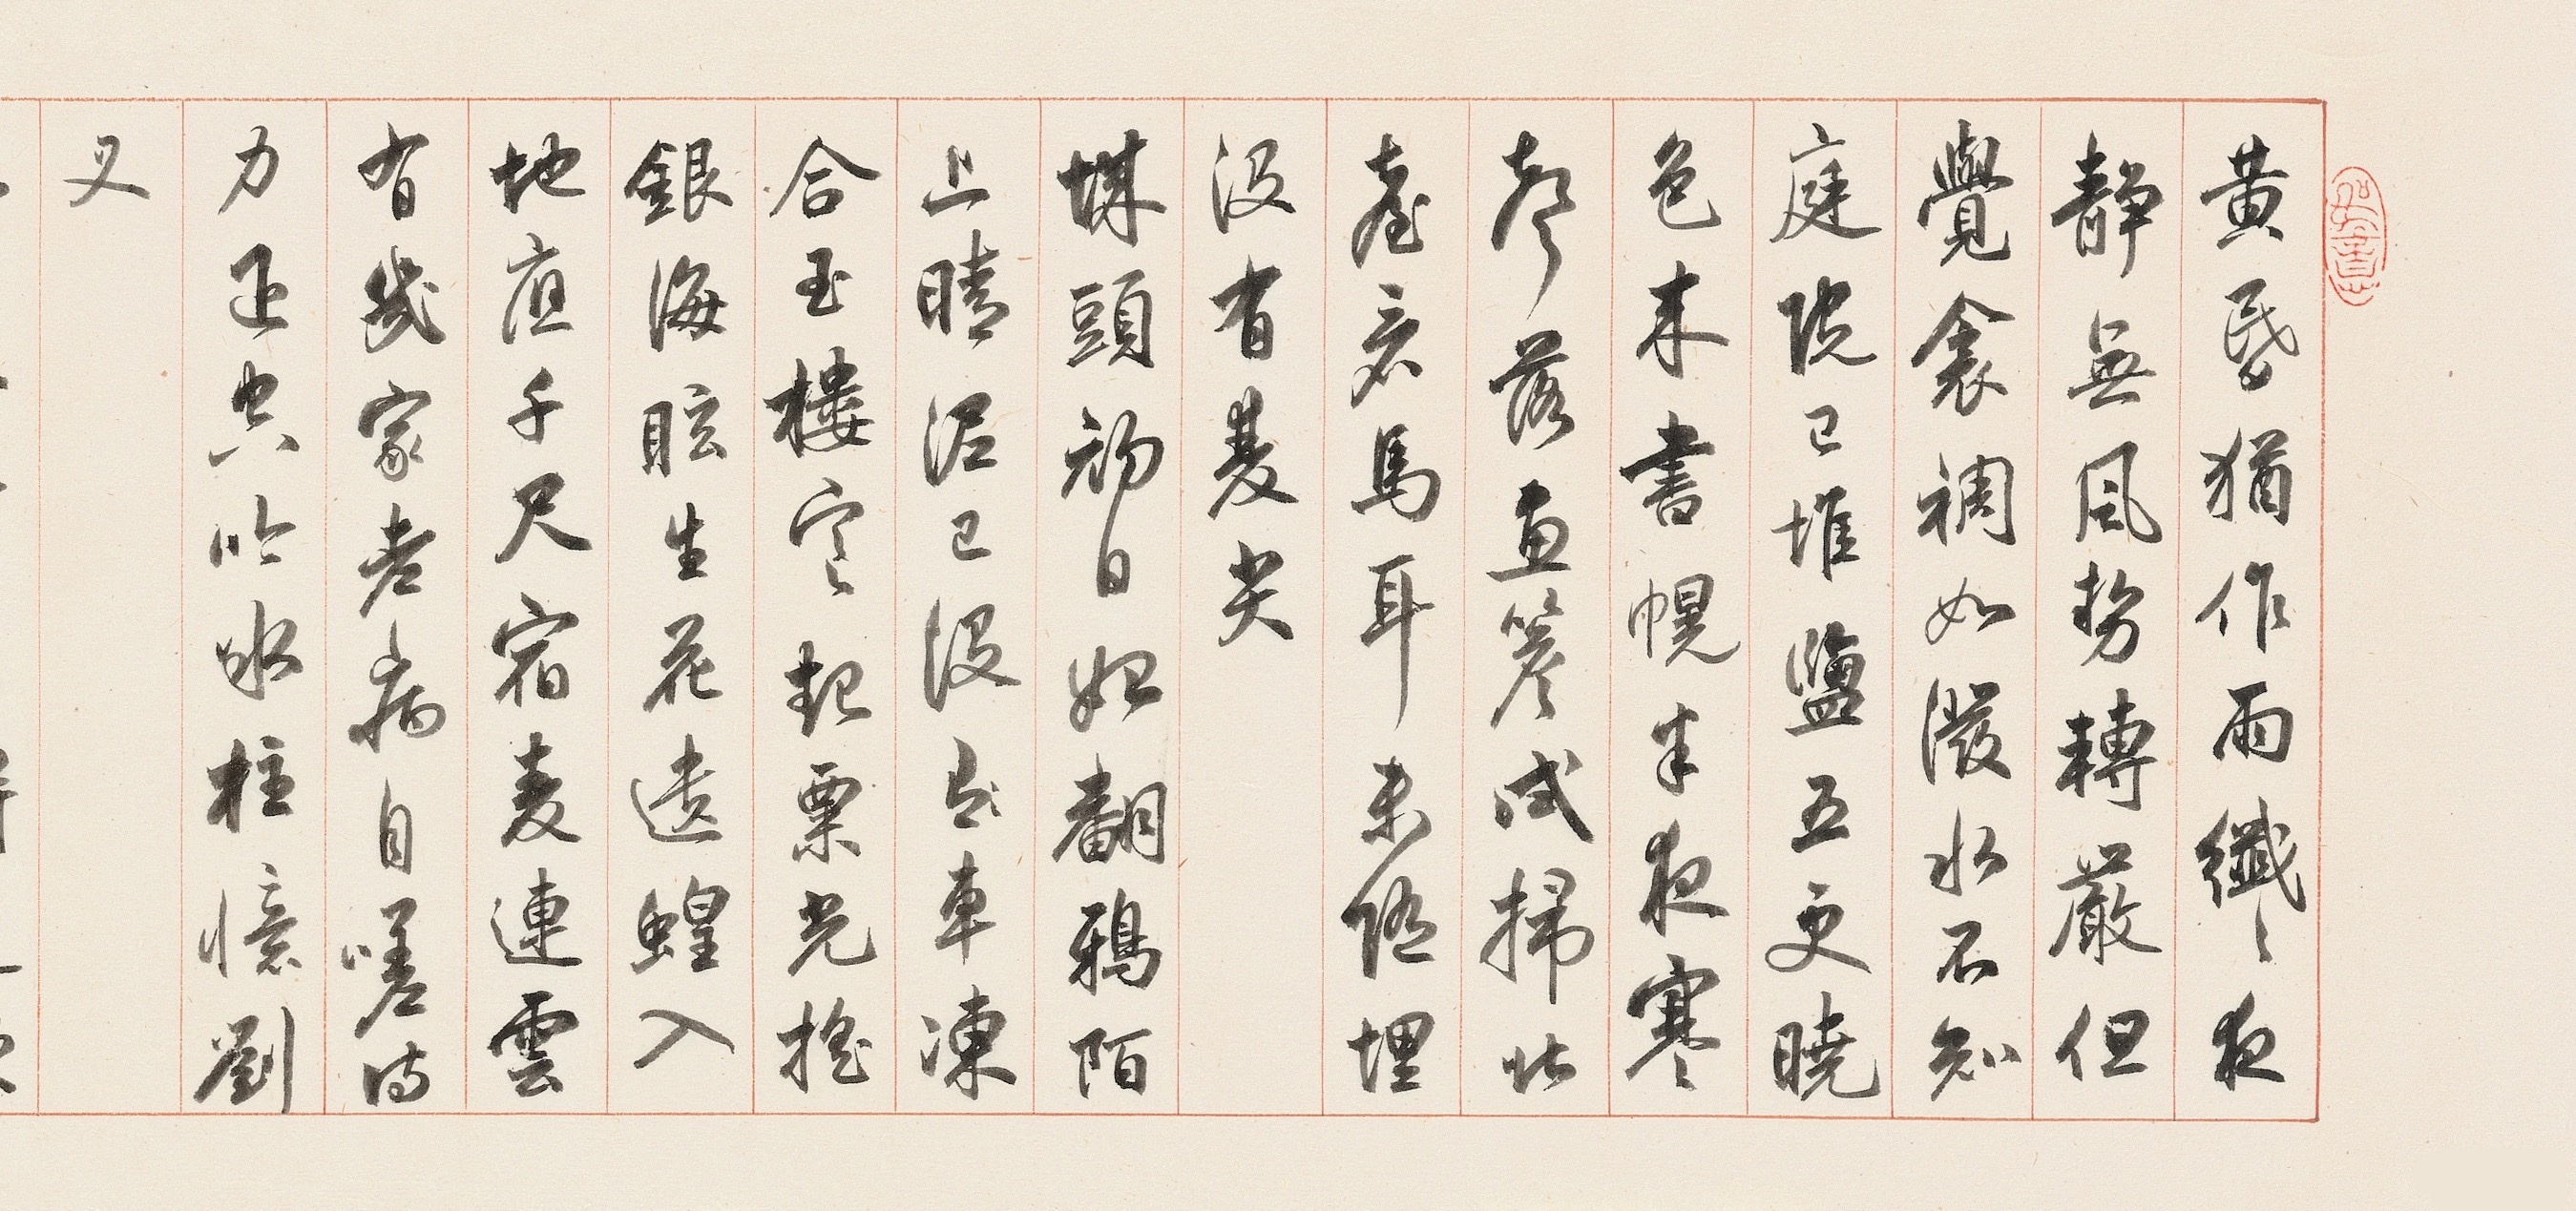 黄昏猶作雨纖々夜
靜無風勢轉嚴但
覺衾裯如潑水不知
庭院已堆鹽五更曉
色來書幌半夜寒
聲落畫簷試掃北
臺看馬耳未隨埋
沒有雙尖
城頭初日始翻鴉陌
上晴泥已沒車凍
合玉樓寒起粟光搖
銀海眩生花遺蝗入
地應千尺宿麥連雲
有幾家老病自嗟詩
力退空吟冰柱憶劉
叉